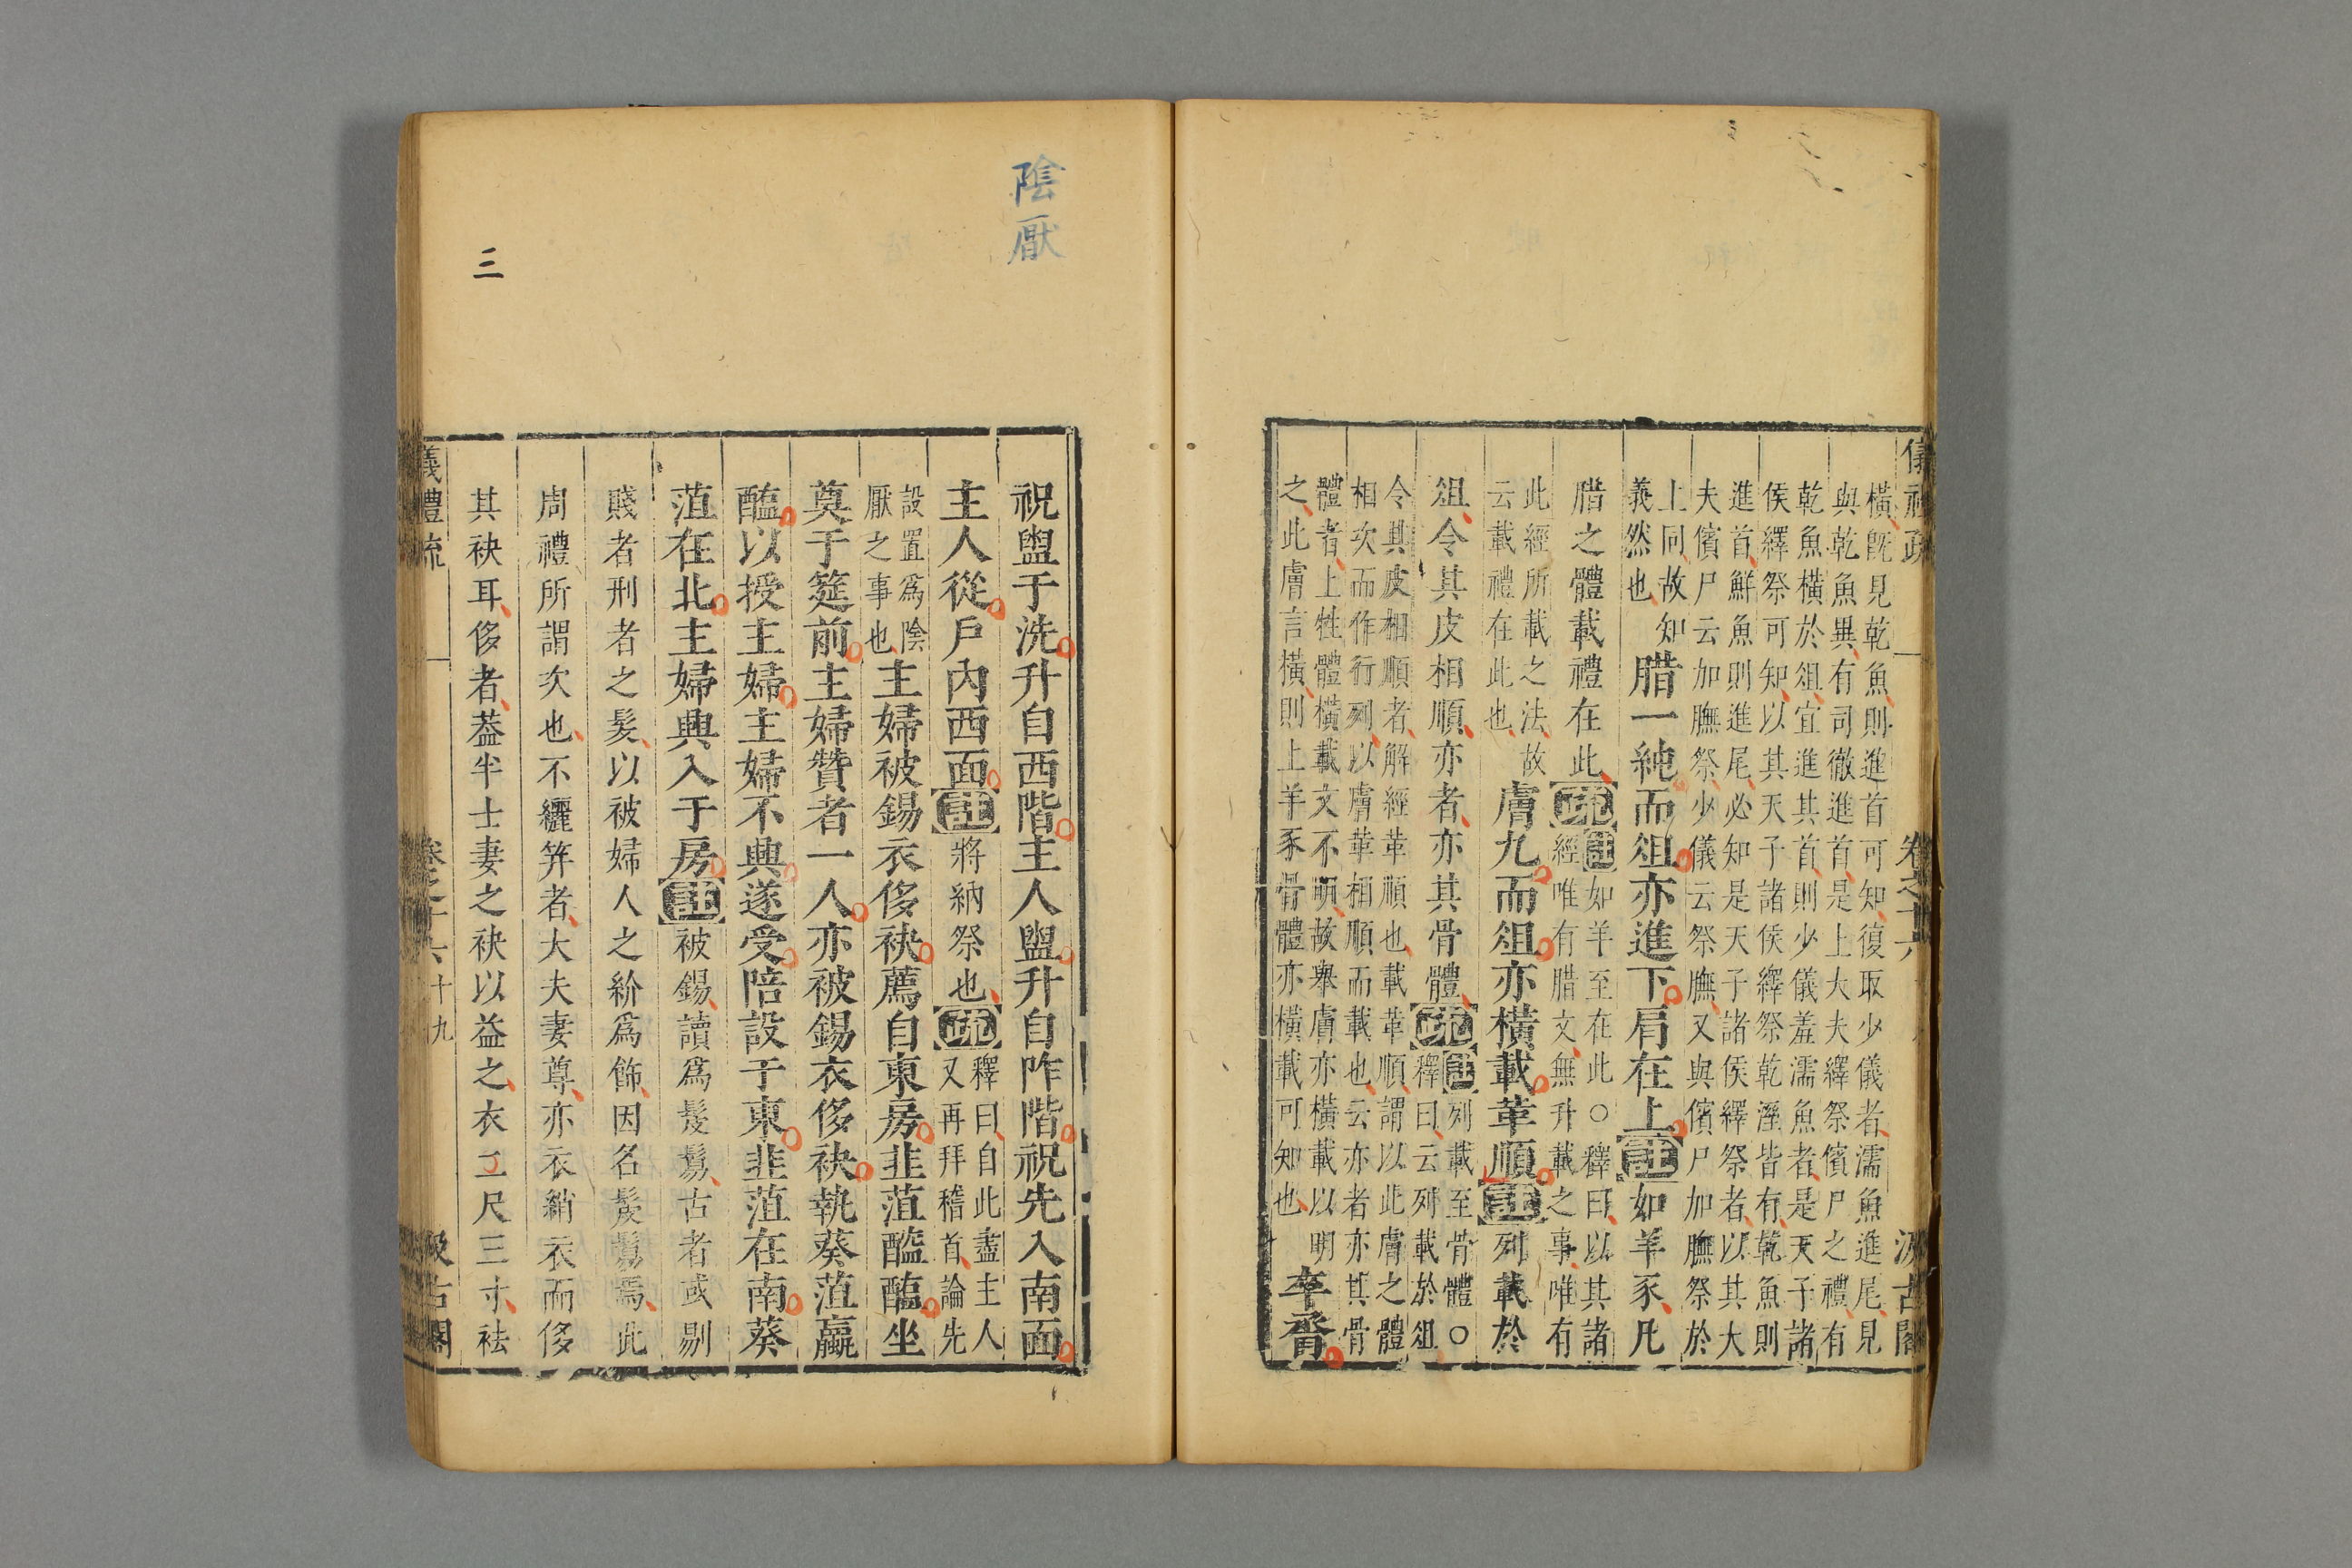 儀禮疏 卷之十六 汲古閣
橫既見乾魚則進首可知復取少儀者濡魚進尾見
與乾魚異有司徹進首是上大夫繹祭儐尸之禮有
乾魚橫於俎宜進其首則少儀羞濡魚者是天子諸
侯繹祭可知以其天子諸侯繹祭乾溼皆有乾魚則
進首鮮魚則進尾必知是天子諸侯繹祭者以其大
夫儐尸云加膴祭少儀云祭膴又與儐尸加膴祭於
上同故知
義然也
腊一純而俎亦進下肩在上註如羊豕凡
腊之體載禮在此疏
註如羊至在此○釋曰以其諸
經唯有腊文無升載之事唯有
此經所載之法故
云載禮在此也
膚九而俎亦橫載革順註列載於
俎令其皮相順亦者亦其骨體疏
註列載至骨體○
釋曰云列載於俎
令其皮相順者解經革順也載革順謂以此膚之體
相次而作行列以膚革相順而載也云亦者亦其骨
體者上牲體橫載文不明故舉膚亦橫載以明
之此膚言橫則上羊豕骨體亦橫載可知也
卒脀
陰厭
祝盥于洗升自西階主人盥升自阼階祝先入南面
主人從戶內西面註將納祭也疏
釋曰自此盡主人
又再拜稽首論先
設置爲陰
厭之事也
主婦被錫衣侈袂薦自東房韭菹醓醢坐
奠于筵前主婦贊者一人亦被錫衣侈袂執葵菹蠃
醢以授主婦主婦不興遂受陪設于東韭菹在南葵
菹在北主婦興入于房註被錫讀爲髲鬄古者或剔
賤者刑者之髮以被婦人之紒爲飾因名髲鬄焉此
周禮所謂次也不纚笄者大夫妻尊亦衣綃衣而侈
其袂耳侈者葢半士妻之袂以益之衣三尺三寸袪
儀禮疏 卷之十六 十九 汲古閣
三